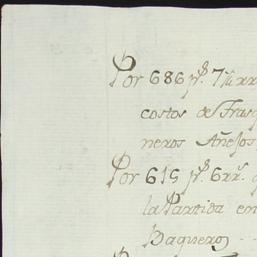 Por 686 ps. 7 rr
costos de Frasq
neros Añejos
Por 615 ps. 6 rr.
la Partida en
Baqueros